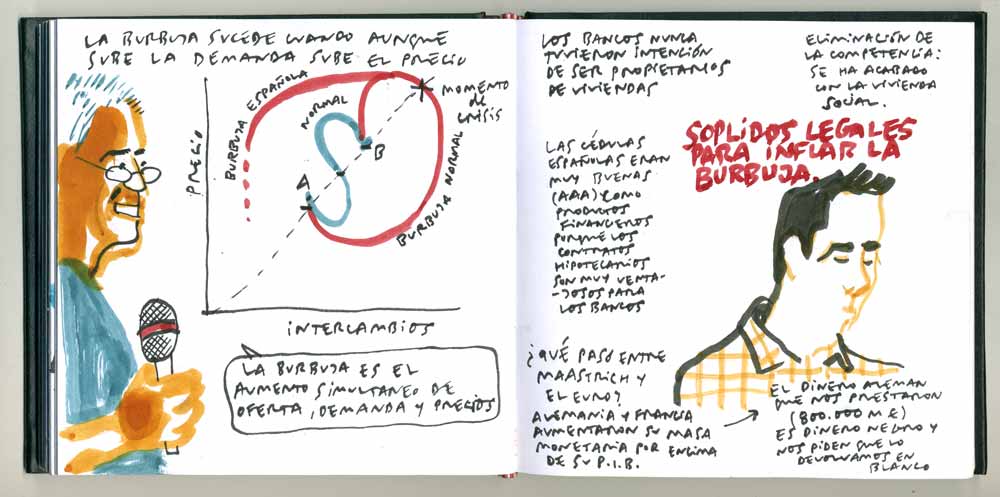 LA BURBUJA SUCEDE CUANDO AUNQUE
SUBE LA DEMANDA SUBE EL PRECIO
BURBUJA ESPAÑOLA
NORMAL
MOMENTO
DE
CRISIS
PRECIO
A
B
BURBUJA NORMAL
INTERCAMBIOS
LA BURBUJA ES EL
AUMENTO SIMULTANEO DE
OFERTA, DEMANDA Y PRECIOS
LOS BANCOS NUNCA
TUVIERON INTENCIÓN
DE SER PROPIETARIOS
DE VIVIENDAS
ELIMINACIÓN DE
LA COMPETENCIA:
SE HA ACABADO
CON LA VIVIENDA
SOCIAL.
SOPLIDOS LEGALES
PARA INFLAR LA
BURBUJA.
LAS CÉDULAS
ESPAÑOLAS ERAN
MUY BUENAS
(AAA) COMO
PRODUCTOS
FINANCIEROS
PORQUE LOS
CONTRATOS
HIPOTECARIOS
SON MUY VENTA-
-JOSOS PARA
LOS BANCOS
¿QUÉ PASÓ ENTRE
MAASTRICH Y
EL EURO?
ALEMANIA Y FRANCIA
AUMENTARON SU MASA
MONETARIA POR ENCIMA
DE SU P.I.B.
EL DINERO ALEMAN
QUE NOS PRESTARON
(800.000 M €)
ES DINERO NEGRO Y
NOS PIDEN QUE LO
DEVOLVAMOS EN
BLANCO